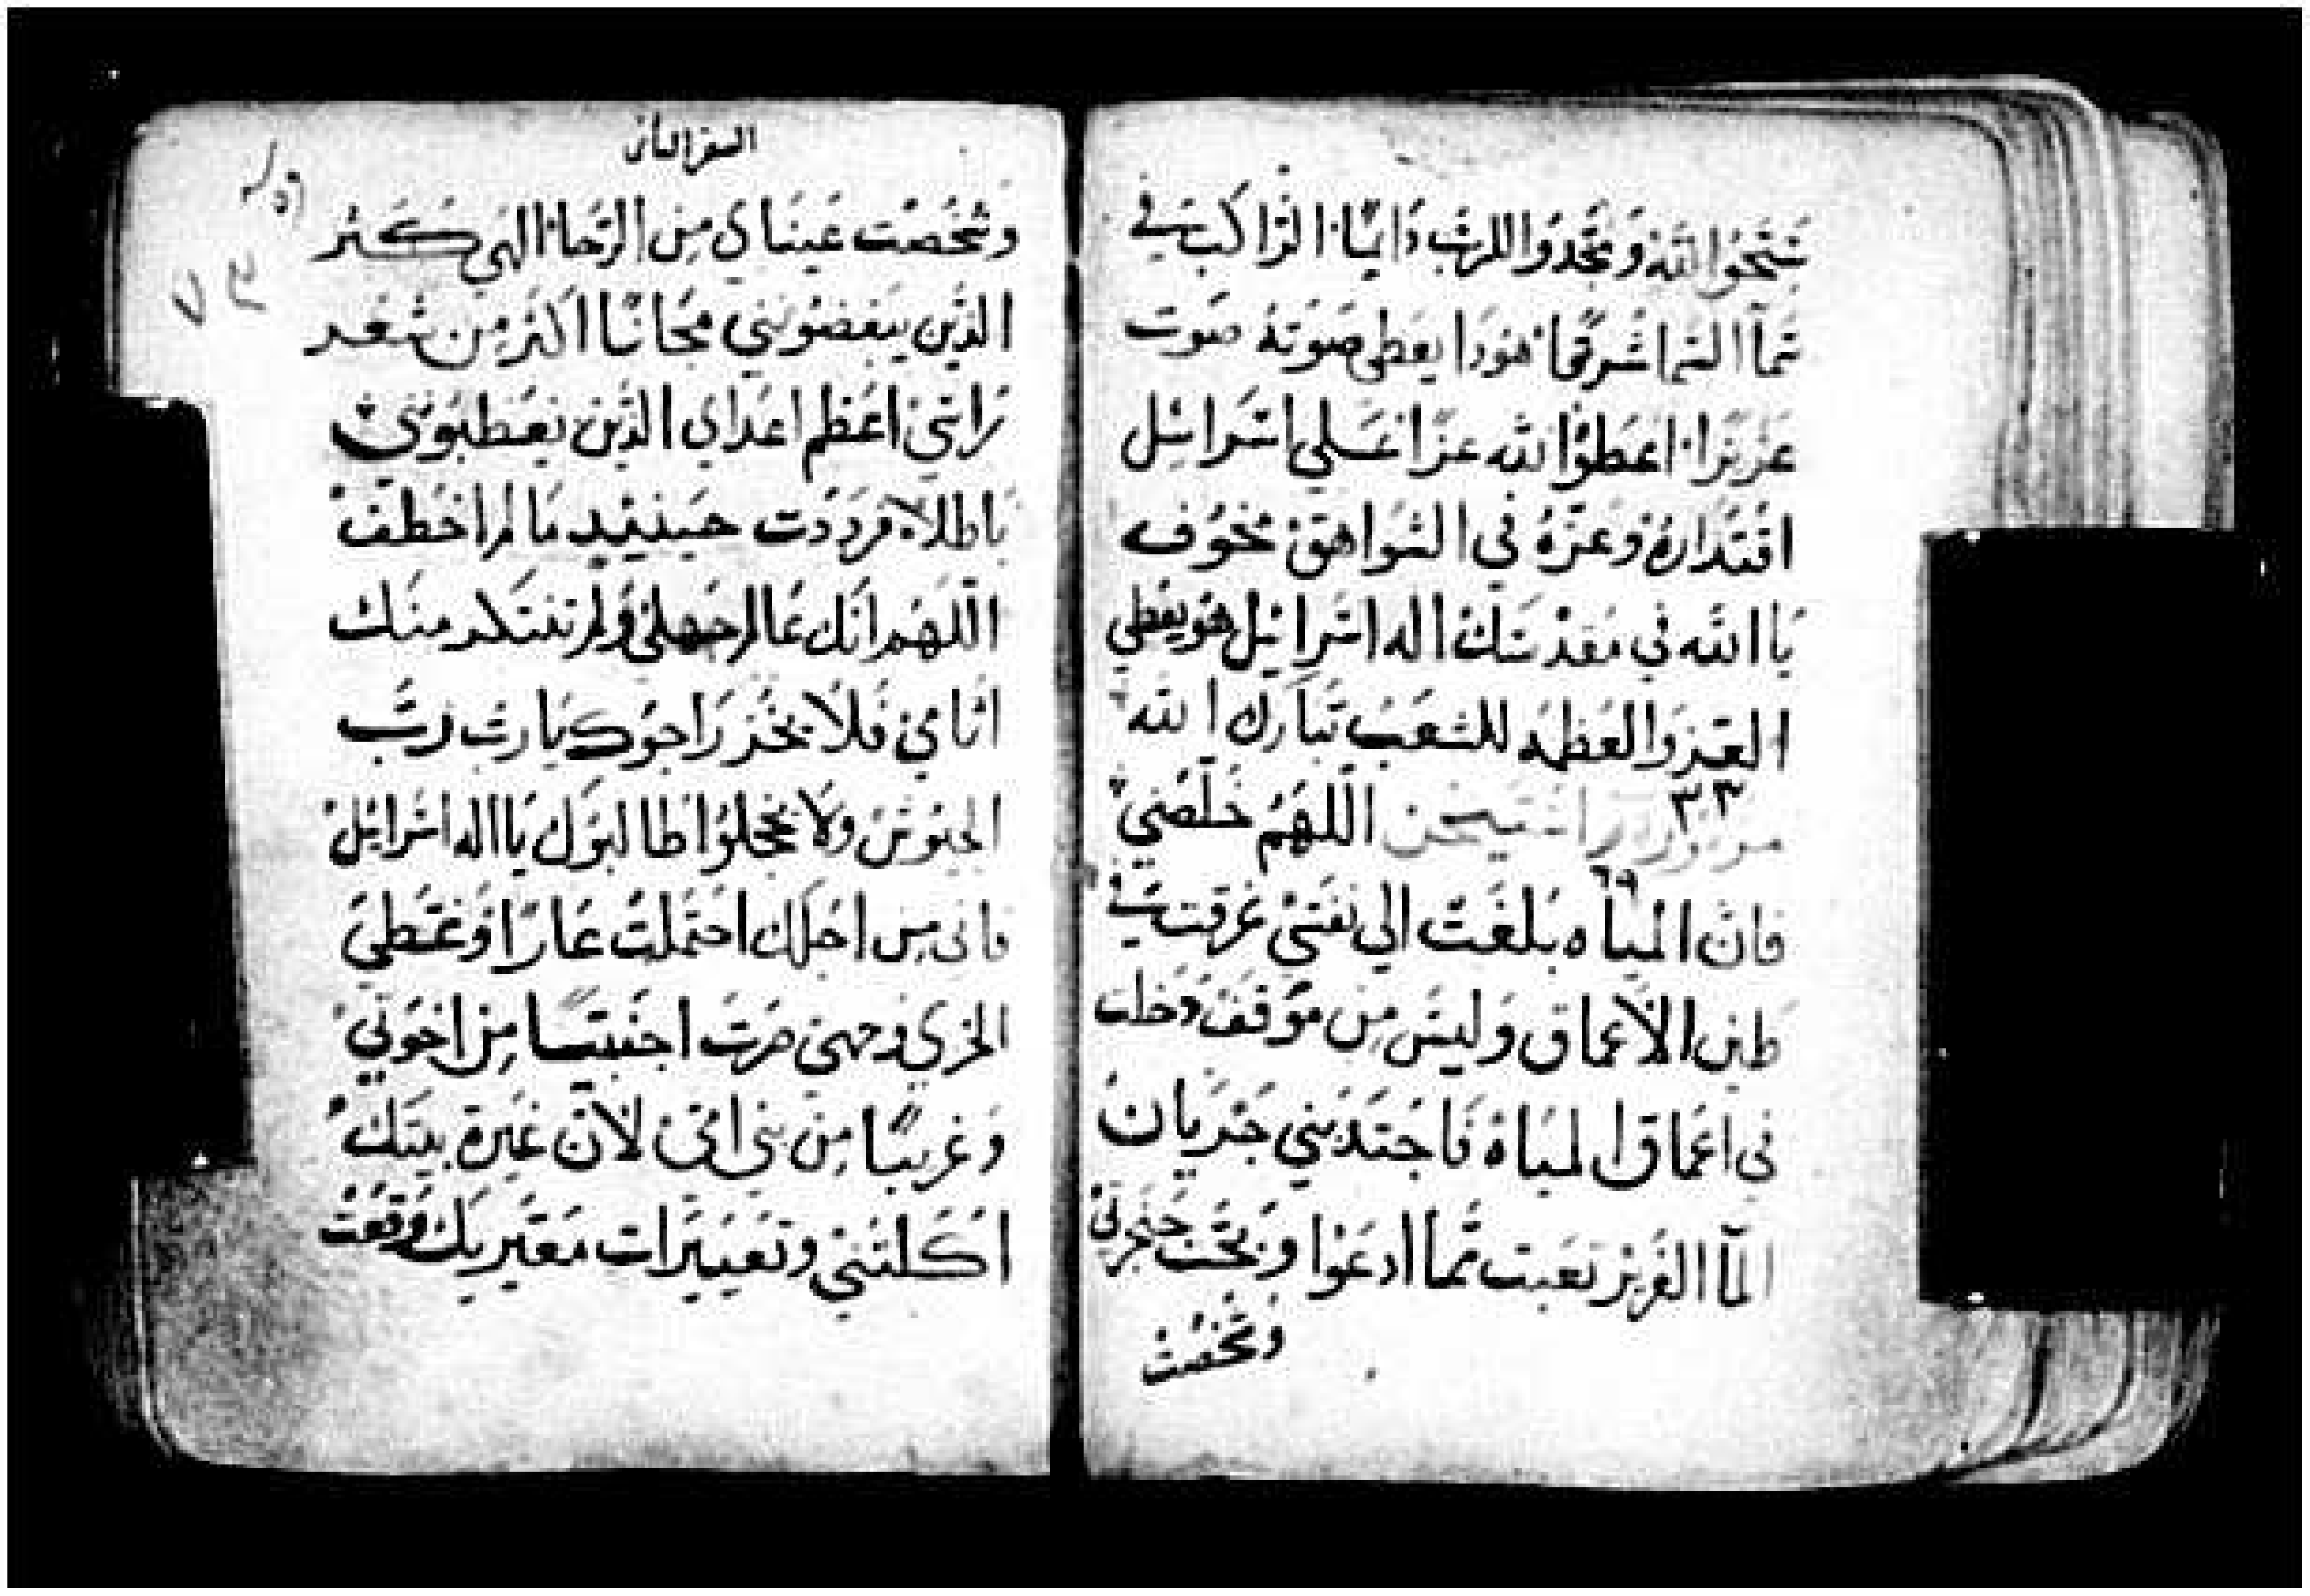 سبحوا الله ومجدوا للرب دايمًا الراكب في
سما السما شرقًا هوذا يعطي صوته صوت
عزيزا اعطوا الله عزا علي اسراييل
اقتداره وعزه في الشواهق مخوف
يا الله في مقدسك اله اسراييل هو يعطي
العز والعظمه للشعب تبارك الله
مزمور ٣٣ اللهم خلصني
٦٩
فان المياه بلغت الي نفسي غرقت في
طين الاعماق وليس من موقف دخلت
في اعماق المياه فاجتدبني جريان
الما الغزير تعبت مما ادعوا وبحت حنجرتي
وشخصت
السفر التاني
٧٣
وشخصت عيناي من الرجا الهي كثر
الذين يبغضونني مجانًا اكثر من شعر
راسي اعظم اعداي الذين يعطبونني
باطلا فرددت حينيذ ما لم اخطف
اللهم انك عالم جهلي ولم تستتر منك
اثامي فلا يخز راجوك يا رب رب
الجنوش ولا يخجلوا طالبوك يا اله اسراييل
فاني من اجلك احتملت عارا وغطي
الخزي وجهي صرت اجنبيًا من اخوتي
وغريبًا من بني امي لان غيرة بيتك
اكلتني وتعييرات معيريك وقعت